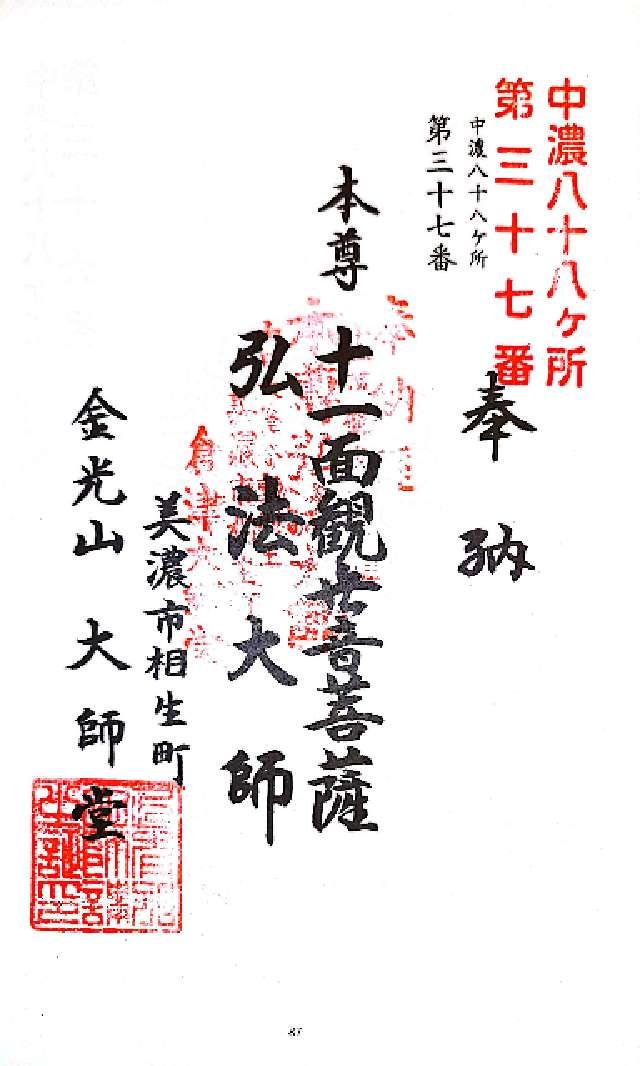 中濃八十八ヶ所
第三十七番
中濃八十八ヶ所
第三十七番
奉納
本尊 十一面観世音菩薩
弘法大師
美濃市相生町
金光山 大師堂